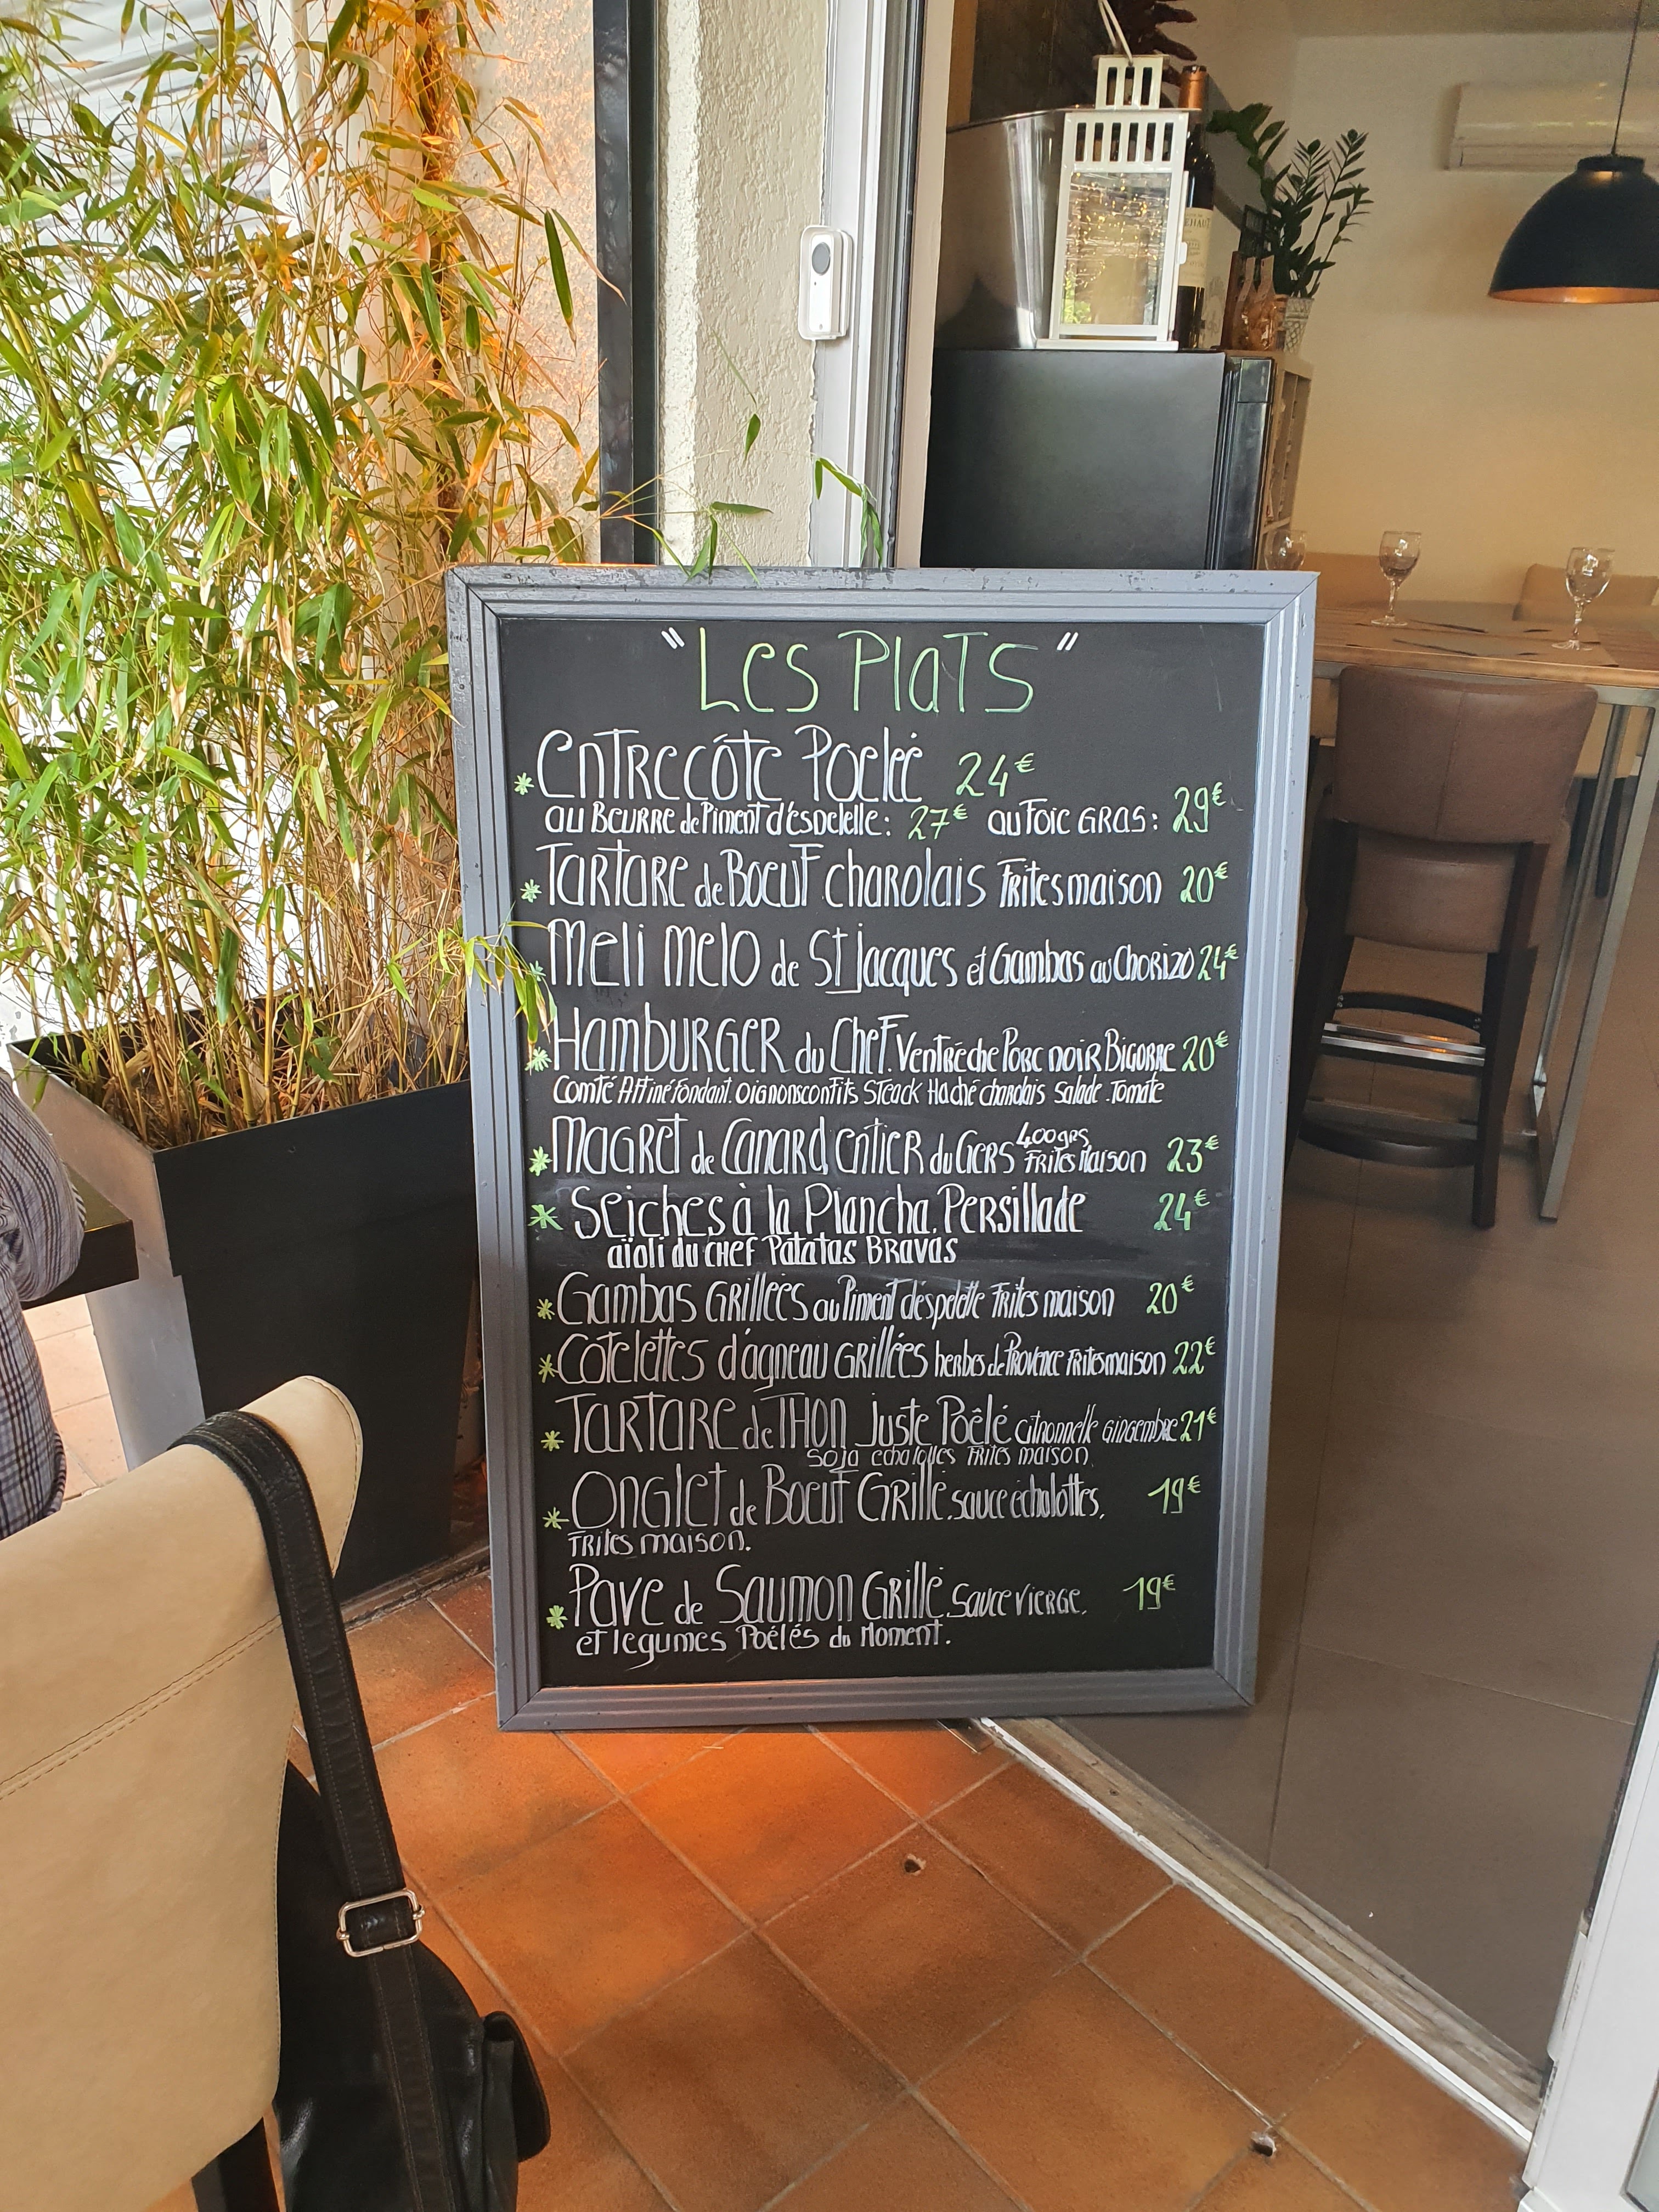 "Les Plats"
* Entrecôte Poelée 24€
au Beurre de Piment d'espelette: 27€ au Foie GRAS: 29€
* Tartare de Boeuf charolais Frites maison 20€
* Meli melo de St Jacques et Gambas au Chorizo 24€
* Hamburger du Chef. Ventrèche Porc noir Bigorre 20€
Comté Affiné fondant. oignons confits Steack Haché charolais Salade. Tomate
* Magret de Canard entier du Gers 400grs Frites Maison 23€
* Seiches à la Plancha. Persillade 24€
aïoli du chef Patatas Bravas
* Gambas Grillées au Piment d'espelette Frites maison 20€
* Côtelettes d'agneau Grillées herbes de Provence Frites maison 22€
* Tartare de THON Juste Poêlé citronnelle gingembre 21€
Soja echalottes Frites maison
* Onglet de Boeuf Grillé. sauce échalottes, 19€
Frites maison.
* Pavé de Saumon Grillé. Sauce Vierge. 19€
et legumes Poélés du Moment.